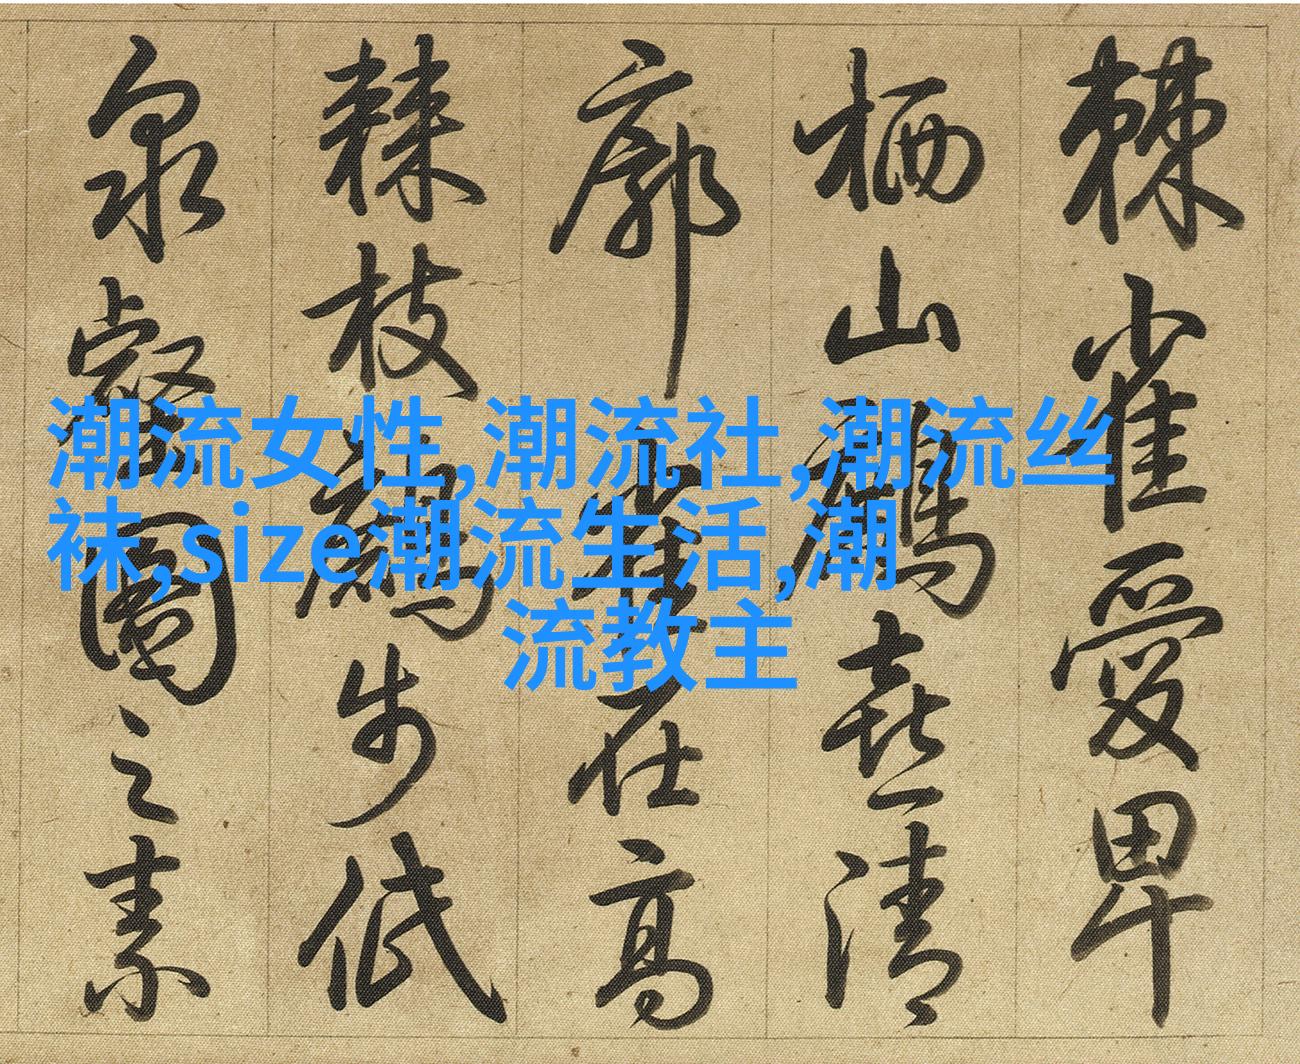 棘雀愛卑
栖山鷓喜清
廓雀在高
棘枝鷓步低
泉壑圖之素
潮流女性,潮流社,潮流丝
袜,size潮流生活,潮
流教主